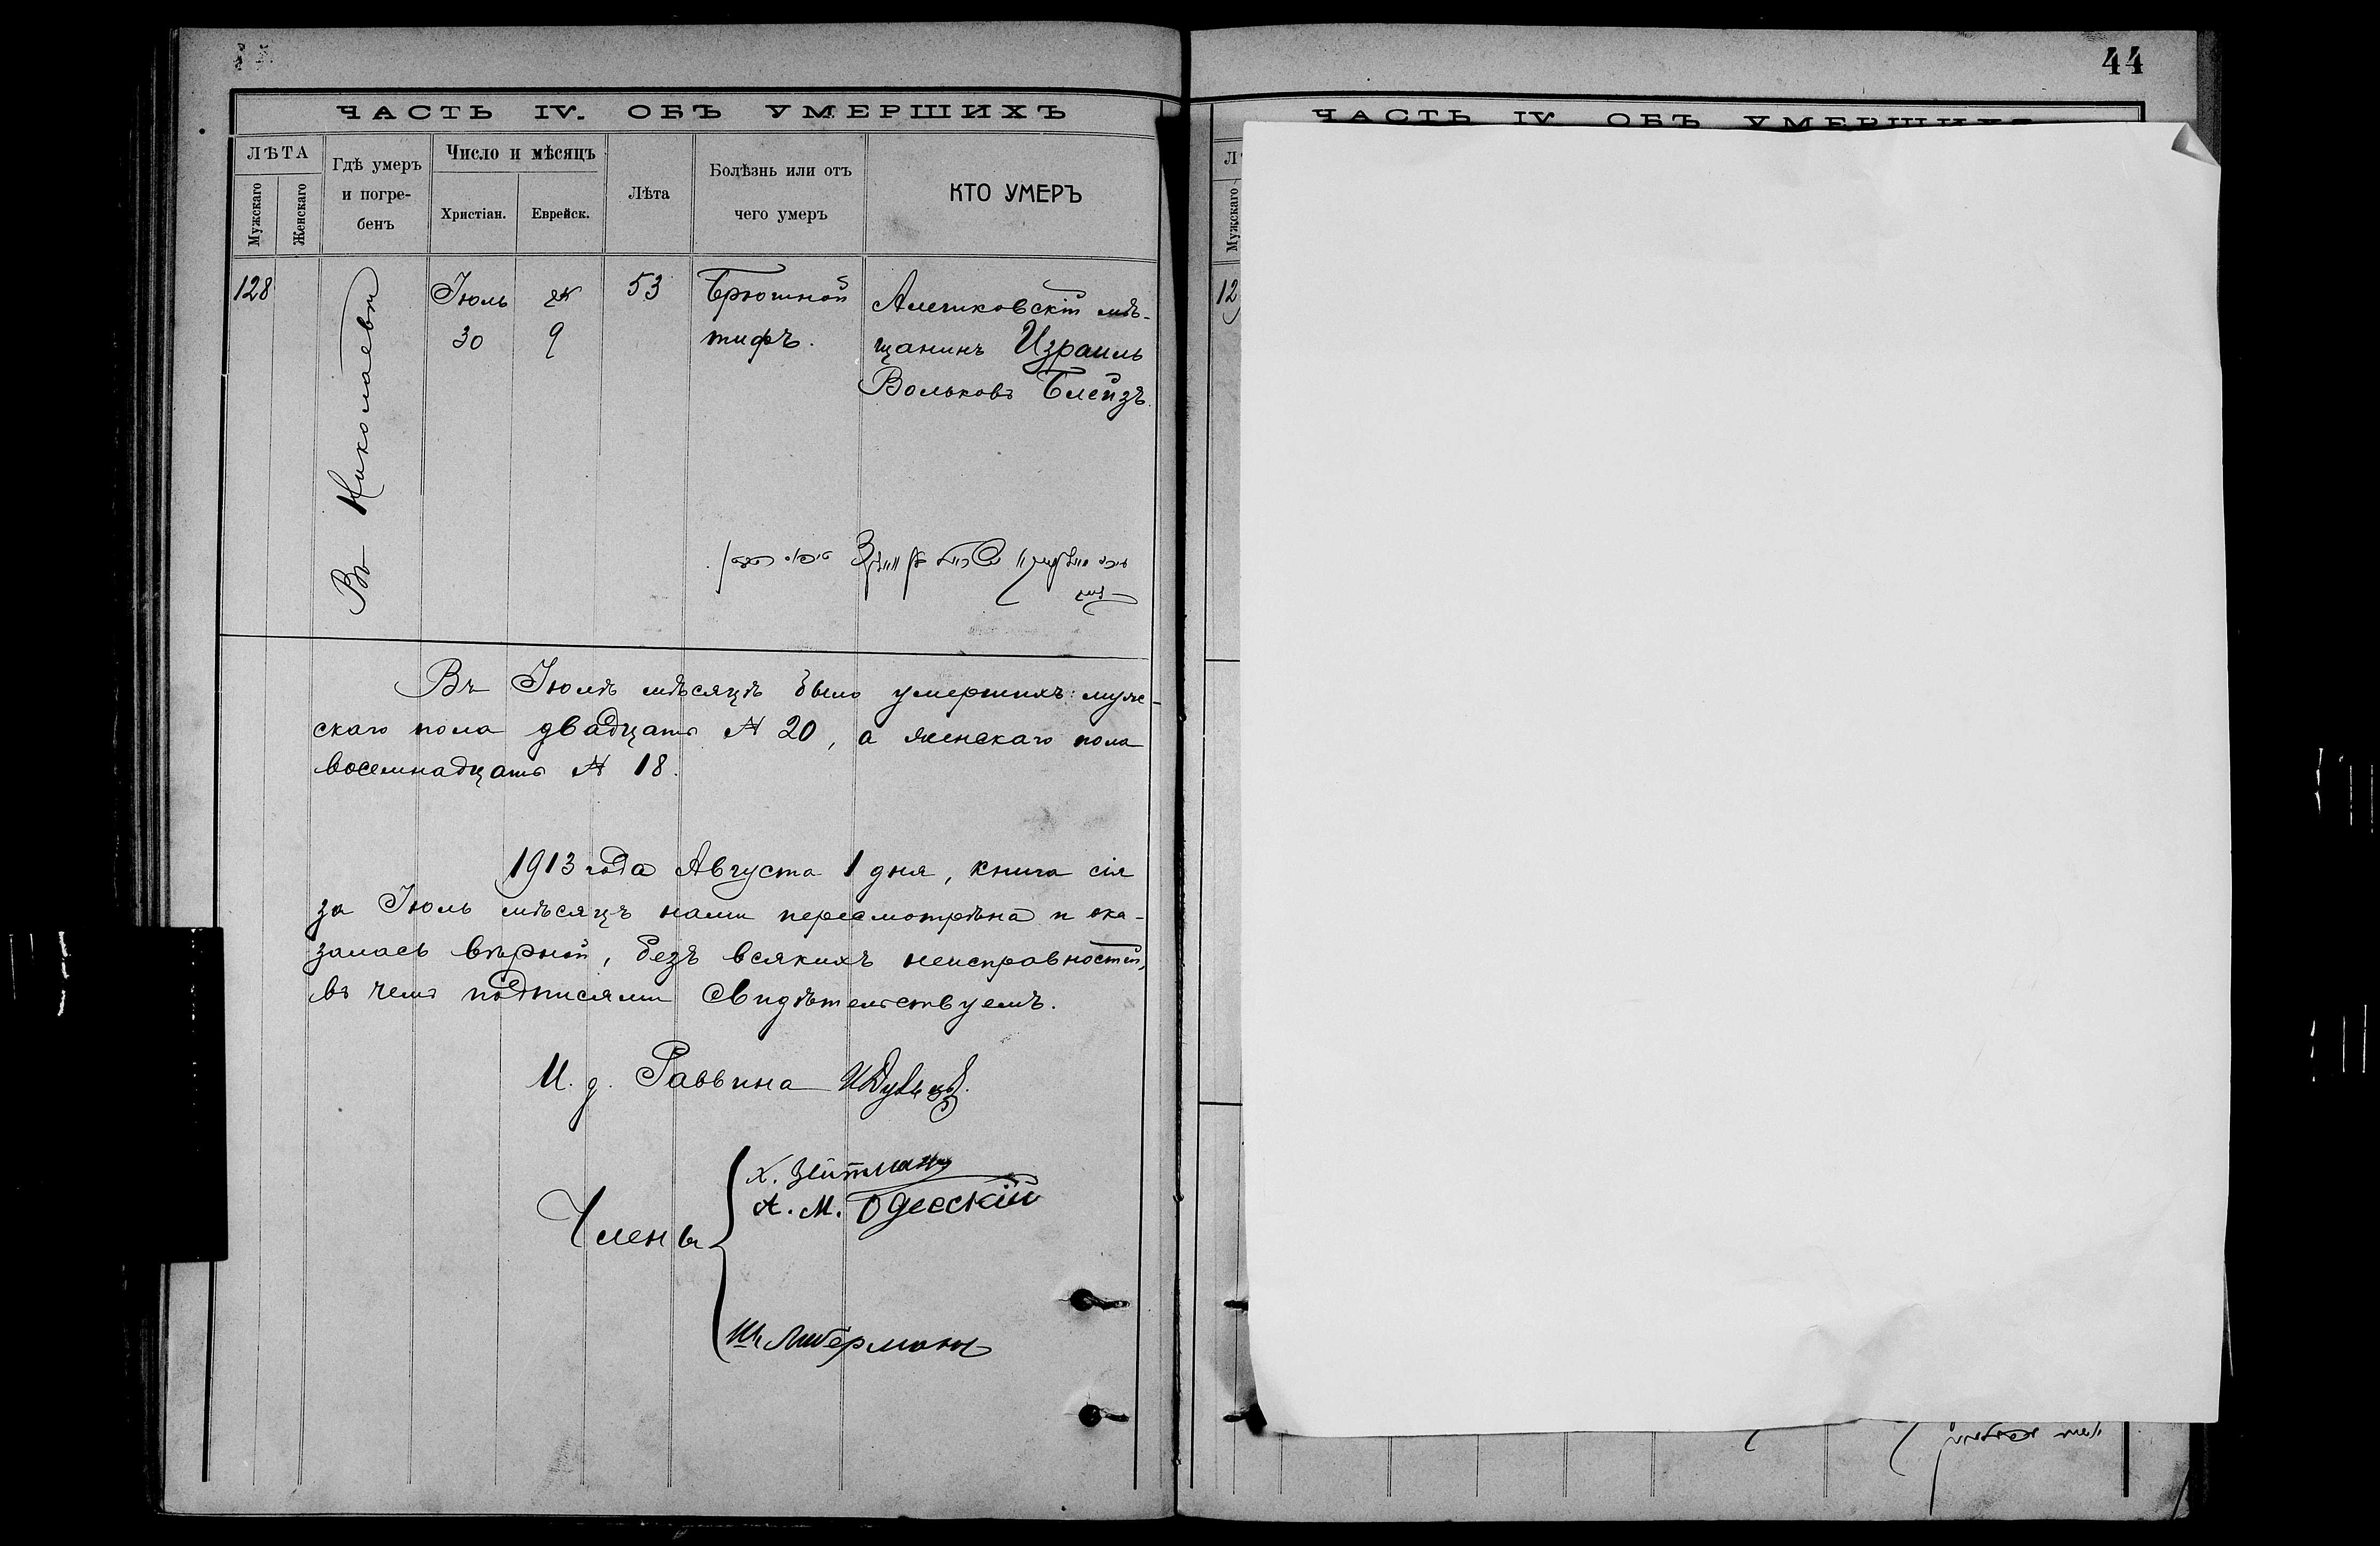 44
ЧАСТЬ IV. ОБЪ УМЕРШИХЪ
ЛѢТА
Мужскаго
Женскаго
Гдѣ умеръ
и погре-
бенъ
Число и мѣсяцъ
Христіан.
Еврейск.
Лѣта
Болѣзнь или отъ
чего умеръ
КТО УМЕРЪ
128
Въ Николаевѣ
Іюль
30
אב
9
53
Брюшной
тифъ.
Алешковскій мѣ-
щанинъ Израиль
Вольковъ Блейзъ.
Въ Іюлѣ мѣсяцѣ было умершихъ: муже-
скаго пола двадцать № 20, а женскаго пола
восемнадцать № 18.
1913 года Августа 1 дня, книга сія
за Іюль мѣсяцъ нами пересмотрѣна и ока-
залась вѣрной, безъ всякихъ неисправностей,
въ чемъ подписями свидѣтельствуемъ.
И. д. Раввина
Члены
Х. Зейтманъ
А. М. Одесскій
Ш Либерманъ
ЧАСТЬ IV. ОБЪ УМЕРШИХЪ
Мужскаго
12